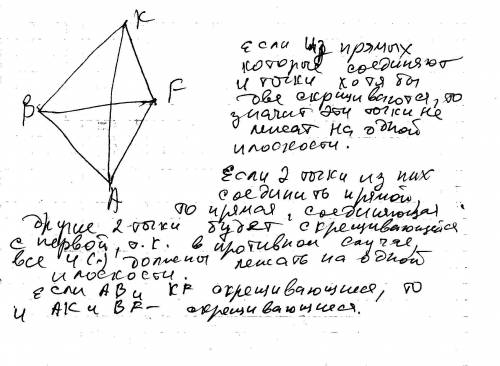 K
B
F
A
Если из прямых
которые соединяют
4 точки хотя бы
две скрещиваются, то
значит эти точки не
лежат на одной
плоскости.
Если 2 точки из них
соединить прямой,
то прямая, соединяющая
другие 2 точки будет скрещивающейся
с первой, т.к. в противном случае,
все 4 (·) должны лежать на одной
плоскости.
Если AB и KF скрещивающиеся, то
и AK и BF - скрещивающиеся.